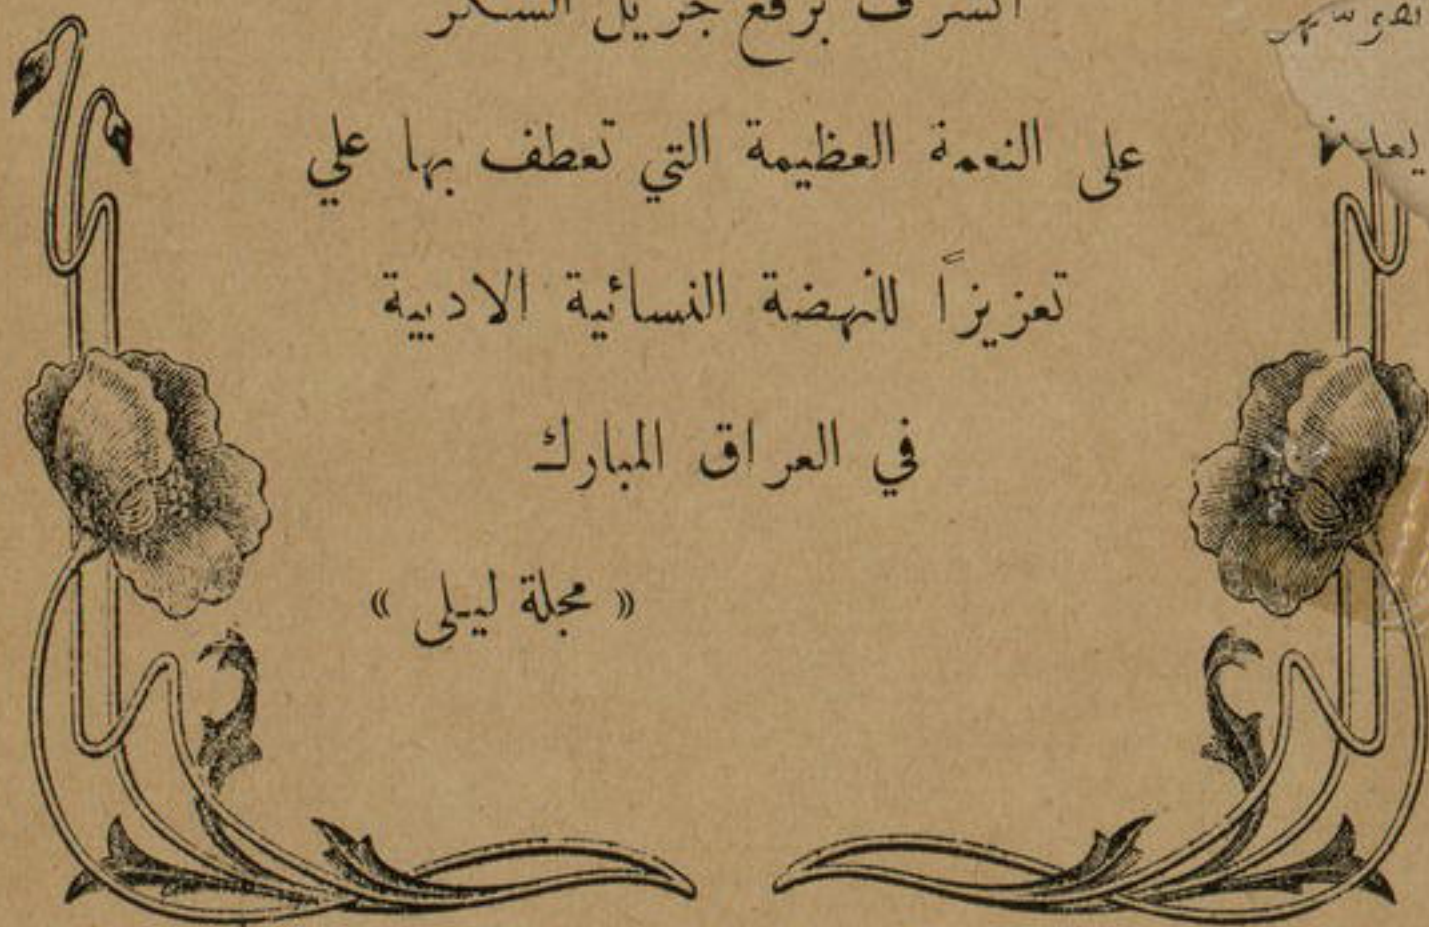 الشرف برفع جزيل الشكر
على النعمة العظيمة التي تعطف بها علي
تعزيزاً للنهضة النسائية الادبية
في العراق المبارك
« مجلة ليلى »